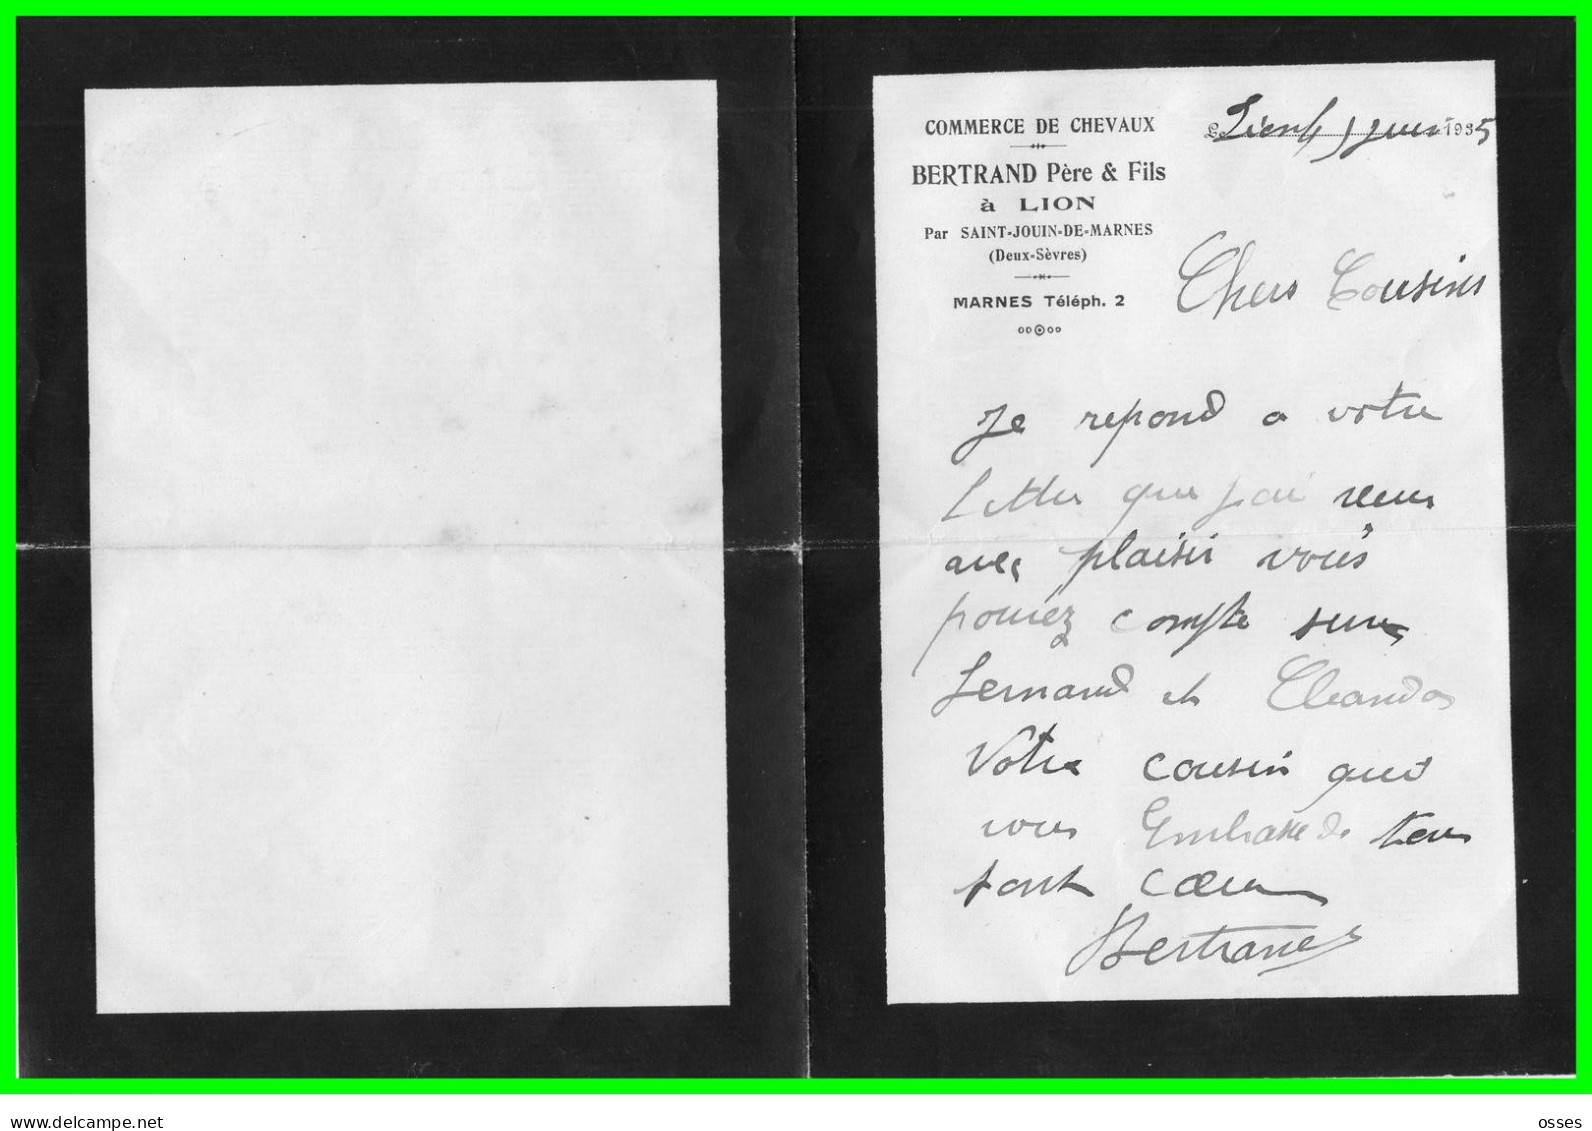 COMMERCE DE CHEVAUX
BERTRAND Père & Fils
à LION
Par SAINT-JOUIN-DE-MARNES
(Deux-Sèvres)
MARNES Téléph. 2
Le 1935
Chers Cousins
Je repond a votre
Letter que jai
avec plaisir vous
pouiez compte sur
Fernand et
Votre cousin qui
vous Embrasse de
cœur
Bertrand
www.delcampe.net
osses